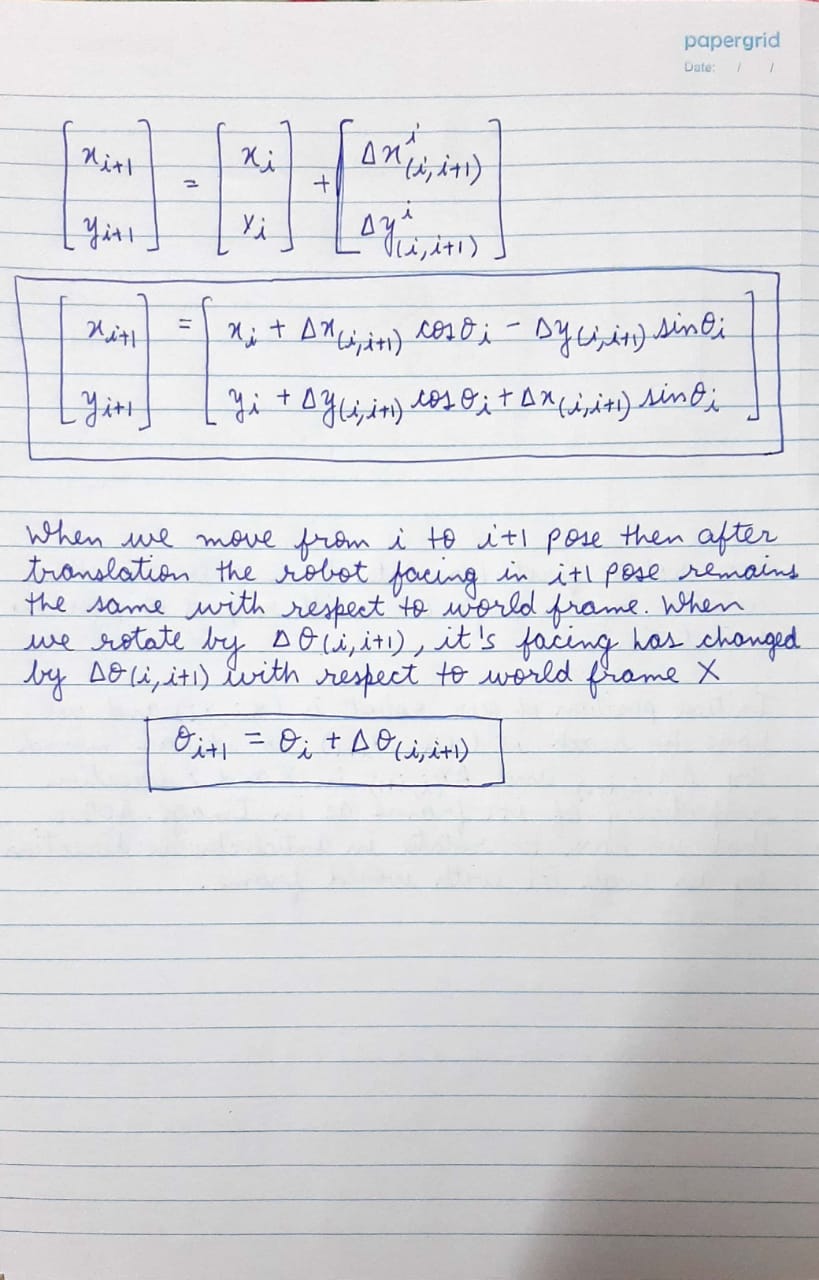 papergrid
Date: / /
[x_{i+1}, y_{i+1}] = [x_i, y_i] + [Δx^i_{(i,i+1)}, Δy^i_{(i,i+1)}]
[x_{i+1}, y_{i+1}] = [x_i + Δx_{(i,i+1)} cosθ_i - Δy_{(i,i+1)} sinθ_i, y_i + Δy_{(i,i+1)} cosθ_i + Δx_{(i,i+1)} sinθ_i]
When we move from i to i+1 pose then after
translation the robot facing in i+1 pose remains
the same with respect to world frame. When
we rotate by Δθ(i,i+1), it's facing has changed
by Δθ(i,i+1) with respect to world frame X
θ_{i+1} = θ_i + Δθ_{(i,i+1)}